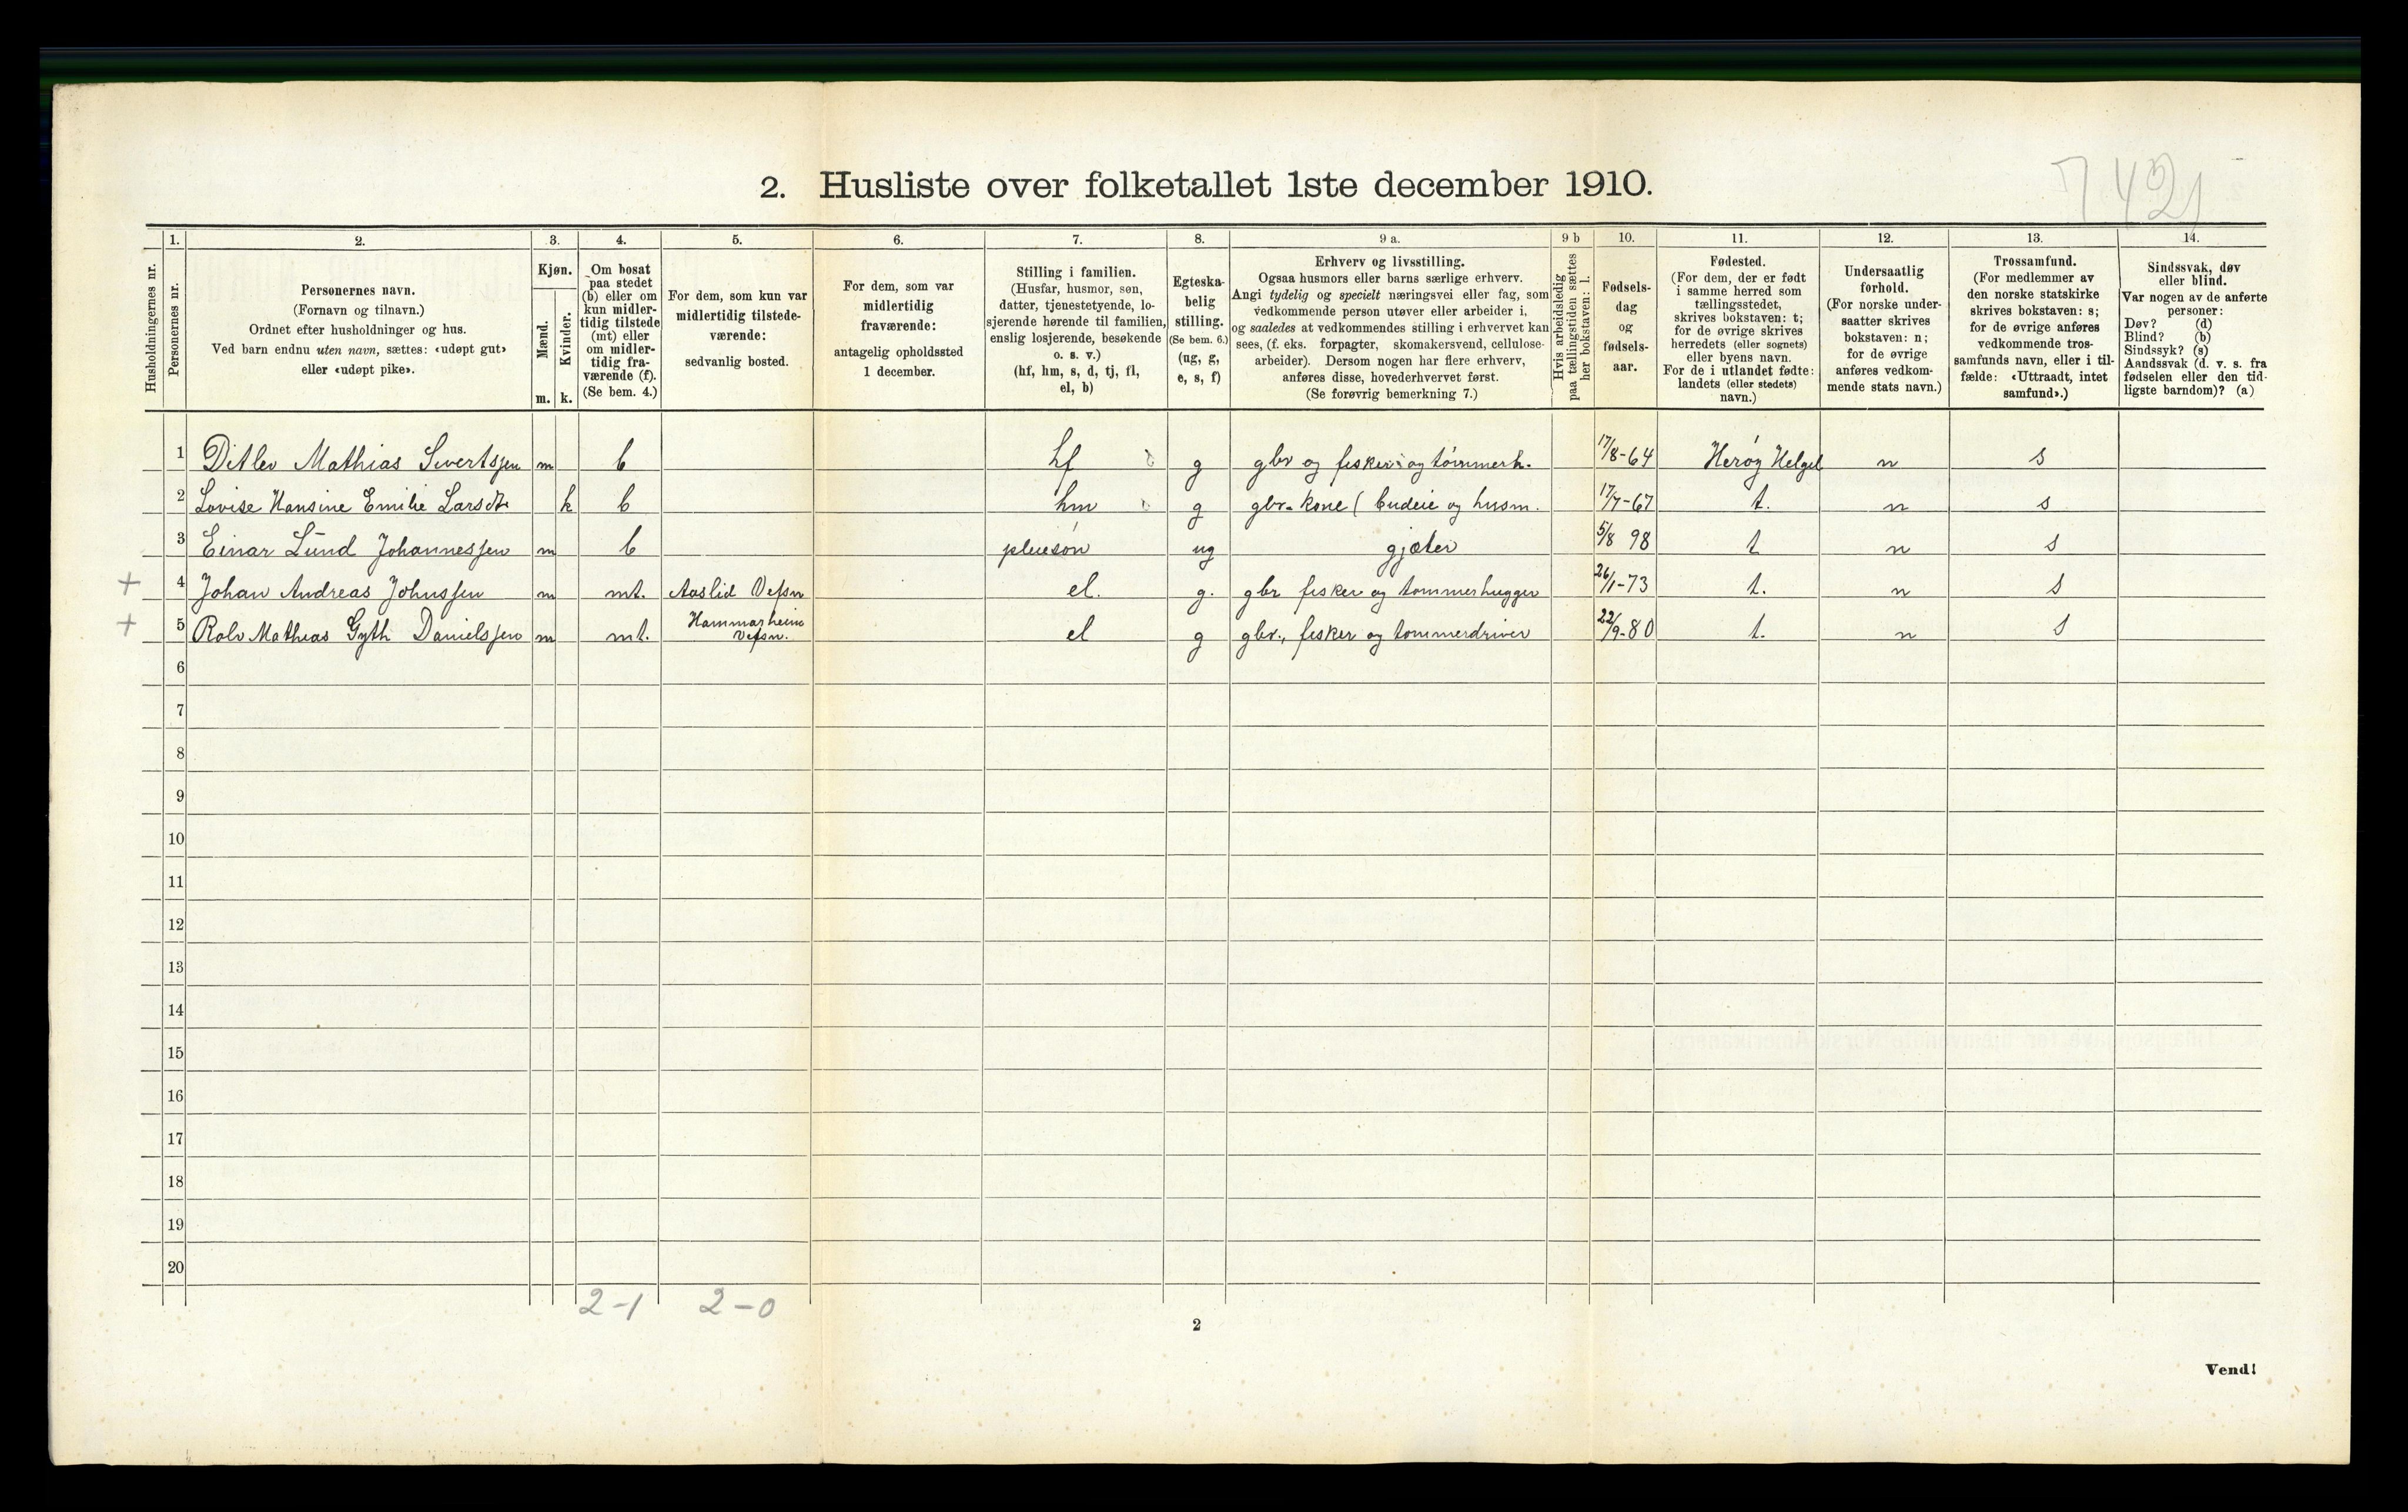 7 421
2. Husliste over folketallet 1ste december 1910.
Husholdningernes nr.
1.
Personernes nr.
2.
Personernes navn.
(Fornavn og tilnavn.)
Ordnet efter husholdninger og hus.
Ved barn endnu uten navn, sættes: «udøpt gut»
eller «udøpt pike».
3.
Kjøn.
Mænd.
Kvinder.
m. k.
4.
Om bosat
paa stedet
(b) eller om
kun midler-
tidig tilstede
(mt) eller
om midler-
tidig fra-
værende (f).
(Se bem. 4.)
5.
For dem, som kun var
midlertidig tilstede-
værende:
sedvanlig bosted.
6.
For dem, som var
midlertidig
fraværende:
antagelig opholdssted
1 december.
7.
Stilling i familien.
(Husfar, husmor, søn,
datter, tjenestetyende, lo-
sjerende hørende til familien,
enslig losjerende, besøkende
o. s. v.)
(hf, hm, s, d, tj, fl,
el, b)
8.
Egteska-
belig
stilling.
(Se bem. 6.)
(ug, g,
e, s, f)
9 a.
Erhverv og livsstilling.
Ogsaa husmors eller barns særlige erhverv.
Angi tydelig og specielt næringsvei eller fag, som
vedkommende person utøver eller arbeider i,
og saaledes at vedkommendes stilling i erhvervet kan
sees, (f. eks. forpagter, skomakersvend, cellulose-
arbeider). Dersom nogen har flere erhverv,
anføres disse, hovederhvervet først.
(Se forøvrig bemerkning 7.)
9 b
Hvis arbeidsledig
paa tællingstiden sættes
her bokstaven: l.
10.
Fødsels-
dag
og
fødsels-
aar.
11.
Fødested.
(For dem, der er født
i samme herred som
tællingsstedet,
skrives bokstaven: t;
for de øvrige skrives
herredets (eller sognets)
eller byens navn.
For de i utlandet fødte:
landets (eller stedets)
navn.)
12.
Undersaatlig
forhold.
(For norske under-
saatter skrives
bokstaven: n;
for de øvrige
anføres vedkom-
mende stats navn.)
13.
Trossamfund.
(For medlemmer av
den norske statskirke
skrives bokstaven: s;
for de øvrige anføres
vedkommende tros-
samfunds navn, eller i til-
fælde: «Uttraadt, intet
samfund».)
14.
Sindssvak, døv
eller blind.
Var nogen av de anførte
personer:
Døv? (d)
Blind? (b)
Sindssyk? (s)
Aandssvak (d. v. s. fra
fødselen eller den tid-
ligste barndom)? (a)
1 Ditlev Mathias Sivertssen m b hf g gbr og fisker og tømmerh. 17/8-64 Herøy Helgel n s
2 Lovise Hansine Emilie Larsdtr k b hm g gbr. kone (budeie og husm. 17/7-67 t. n s
3 Einar Lund Johannessen m b pleiesøn ug gjæter 5/8 98 t n s
+ 4 Johan Andreas Johnssen m mt. Aaslid Vefsn el. g. gbr fisker og tømmerhugger 26/1-73 t. n s
+ 5 Rolv Mathias Gyth Danielssen m mt. Hammarheim Vefsn. el g gbr., fisker og tømmerdriver 22/9-80 t. n s
6
7
8
9
10
11
12
13
14
15
16
17
18
19
20
2-1 2-0
2
Vend!